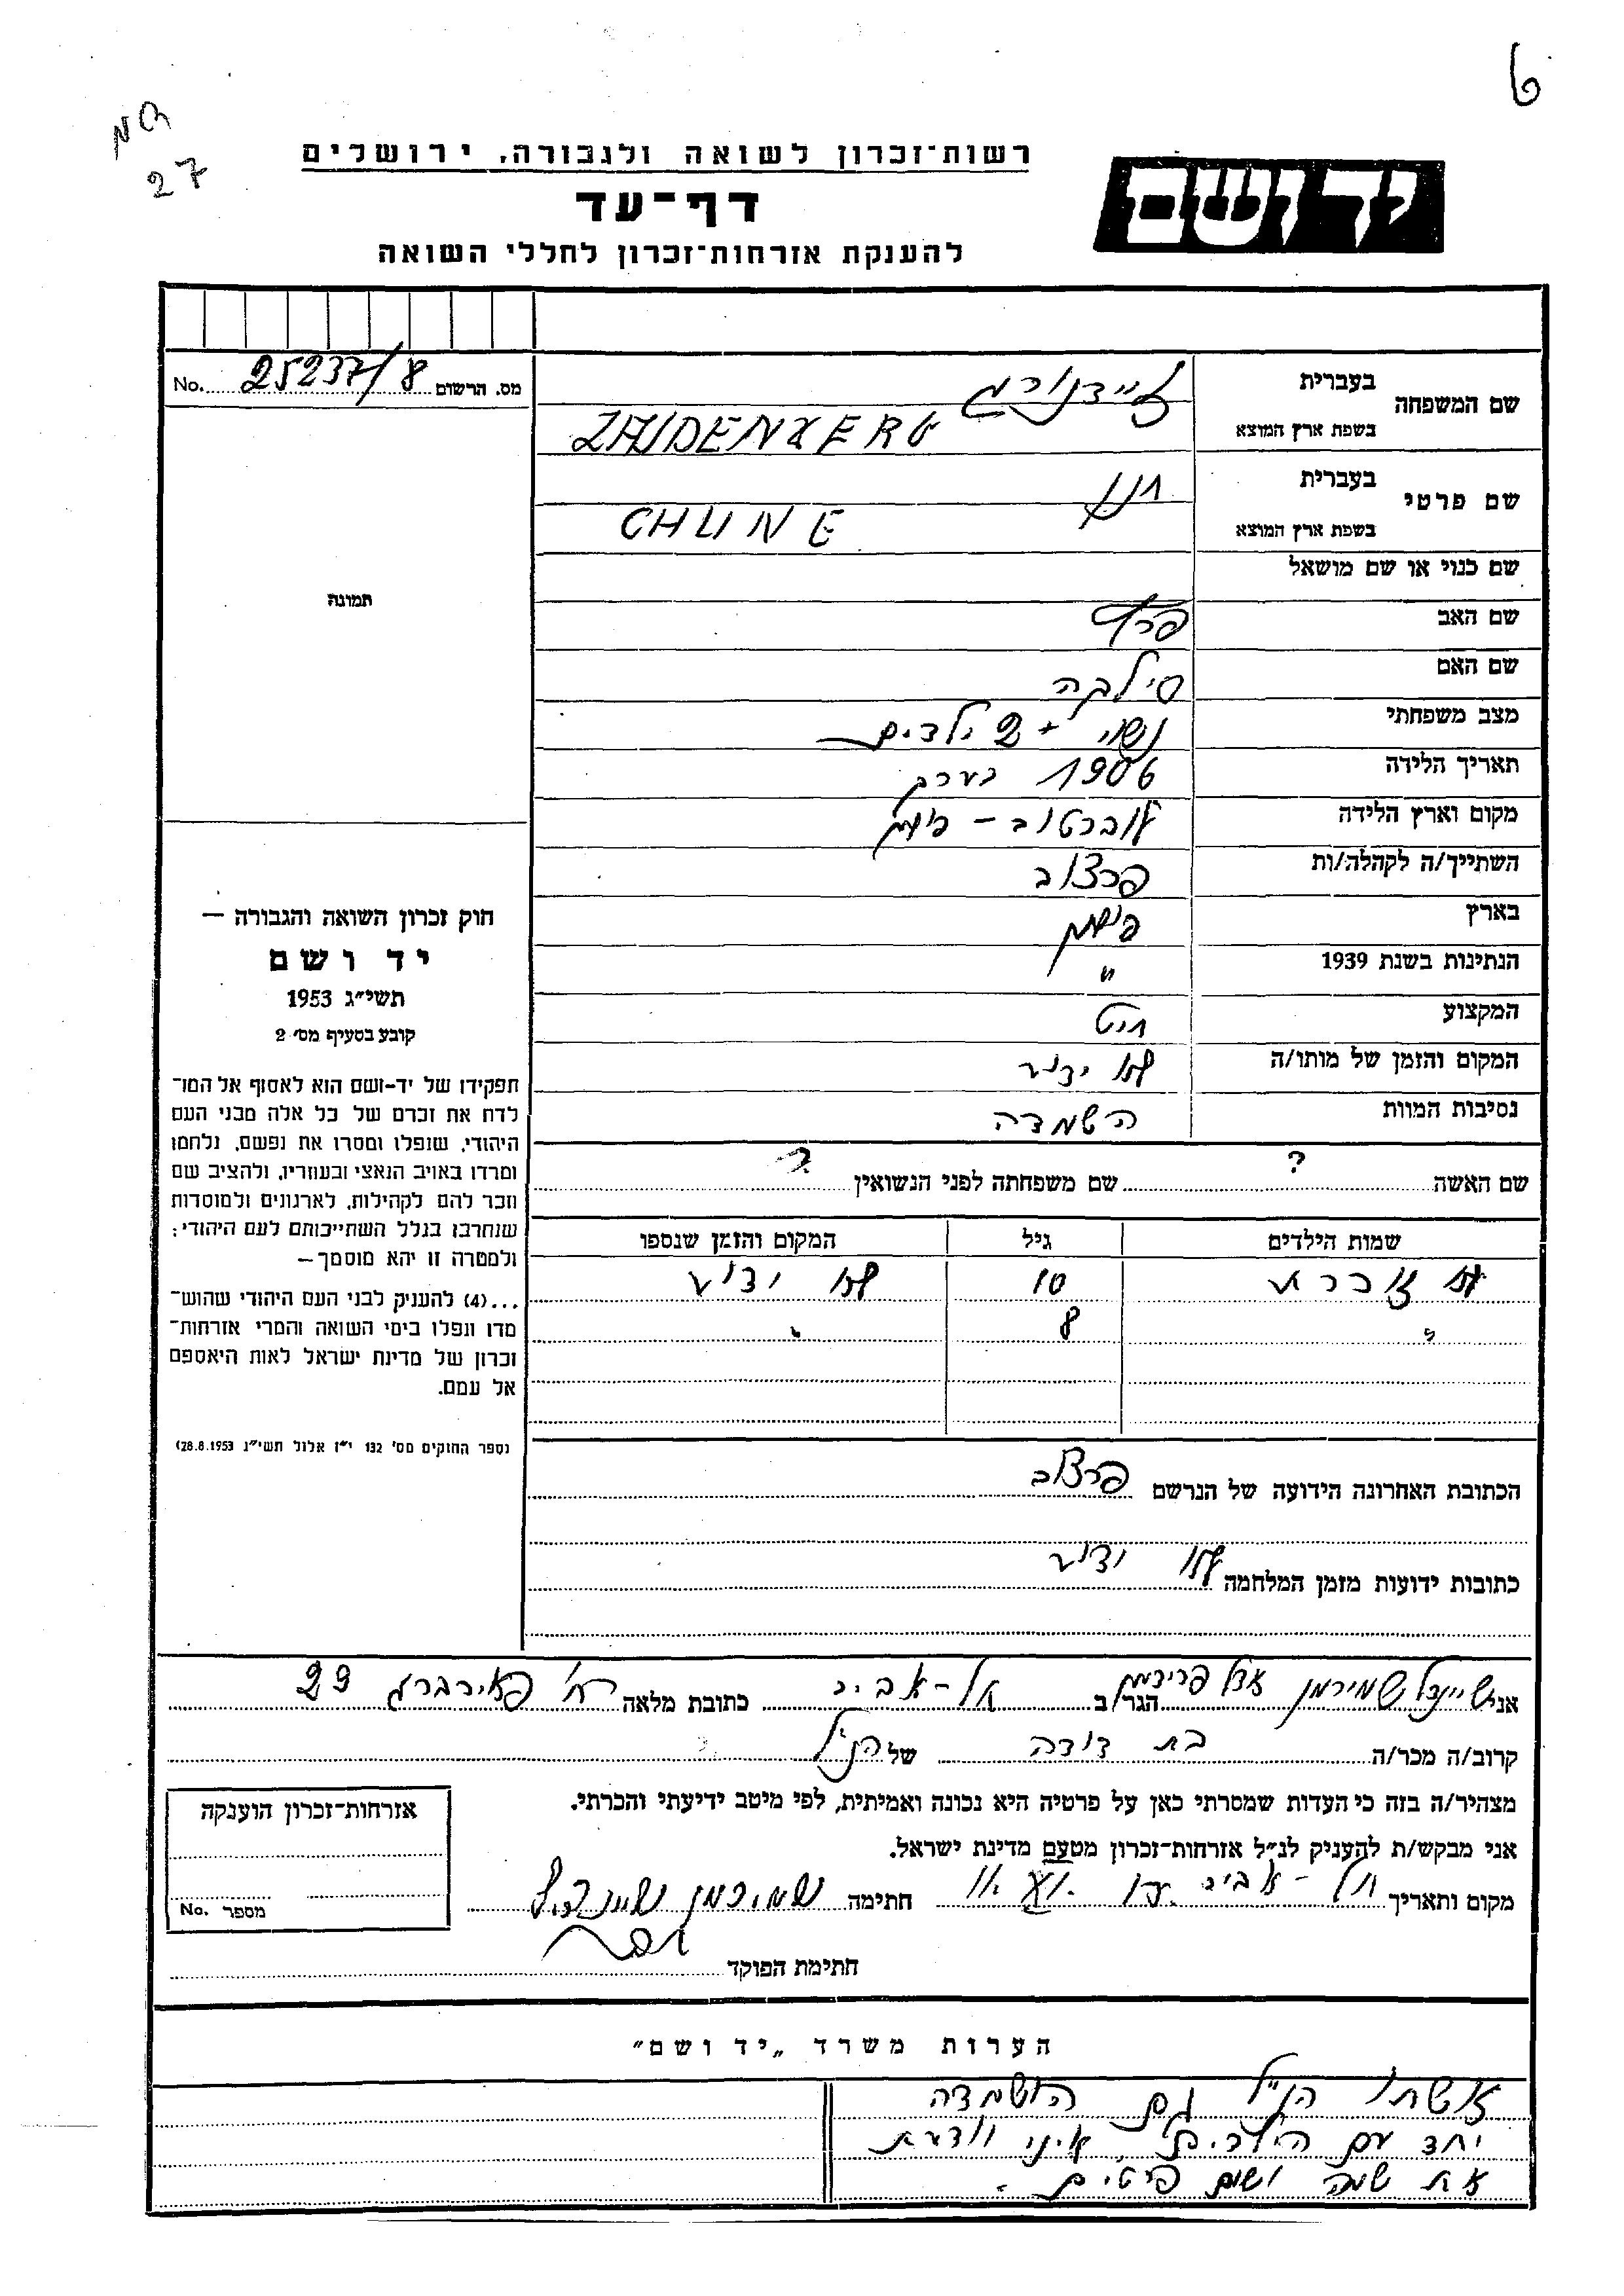 6
27
רשות־זכרון לשואה ולגבורה, ירושלים
יד ושם
דף־עד
להענקת אזרחות־זכרון לחללי השואה
מס. הרשום 25237/8 No.
שם המשפחה בעברית זיידנורג
בשפת ארץ המוצא
שם פרטי בעברית חנן
בשפת ארץ המוצא CHUNE
שם כנוי או שם מושאל
תמונה
שם האב
שם האם סילקה
מצב משפחתי נשוי + 2 ילדים
תאריך הלידה 1906 בערך
מקום וארץ הלידה לוברטוב - פולין
השתייך/ה לקהלה/ות פרצוב
בארץ פולין
הנתינות בשנת 1939 "
המקצוע חיט
המקום והזמן של מותו/ה לא ידוע
נסיבות המוות השמדה
חוק זכרון השואה והגבורה —
יד ושם
תשי״ג 1953
קובע בסעיף מס׳ 2
תפקידו של יד-ושם הוא לאסוף אל המו־
לדת את זכרם של כל אלה מבני העם
היהודי, שנפלו ומסרו את נפשם, נלחמו
ומרדו באויב הנאצי ובעוזריו, ולהציב שם
וזכר להם לקהילות, לארגונים ולמוסדות
שנחרבו בגלל השתייכותם לעם היהודי;
ולמטרה זו יהא מוסמך —
...(4) להענק לבני העם היהודי שהוש־
מדו ונפלו בימי השואה והמרי אזרחות־
זכרון של מדינת ישראל לאות היאספם
אל עמם.
(ספר החוקים מס׳ 132 י״ז אלול תשי״ג 28.8.1953)
שם האשה ? שם משפחתה לפני הנשואין ?
שמות הילדים גיל המקום והזמן שנספו
לא זוכרת 10 לא ידוע
" 8 "
הכתובת האחרונה הידועה של הנרשם פרצוב
כתובות ידועות מזמן המלחמה לא ידוע
אני שיינדל שמירמן אצל פרידמן הגר/ב תל-אביב כתובת מלאה רח׳ פיירברג 29
קרוב/ה מכר/ה בת דודה של הנ״ל
מצהיר/ה בזה כי העדות שמסרתי כאן על פרטיה היא נכונה ואמיתית, לפי מיטב ידיעתי והכרתי.
אני מבקש/ת להעניק לנ״ל אזרחות־זכרון מטעם מדינת ישראל.
מקום ותאריך תל-אביב חתימה שמירמן שיינדל
חתימת הפוקד
אזרחות־זכרון הוענקה
מספר No.
הערות משרד „יד ושם"
אשתו הנ״ל גם הושמדה
יחד עם הילדים. איני יודעת
את שמה ושום פרטים.